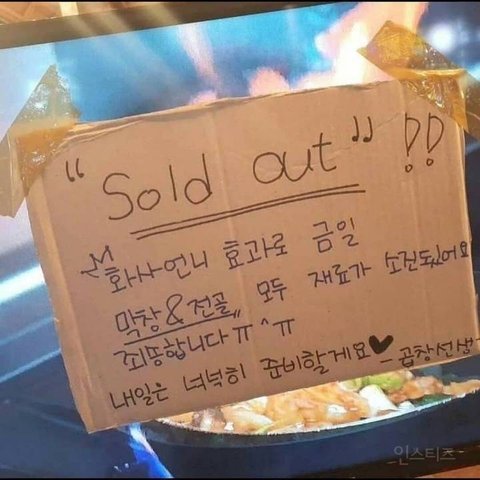 “Sold out” !!
화사언니 효과로 금일
막창&전골 모두 재료가 소진되었어요
죄송합니다ㅠ^ㅠ
내일은 넉넉히 준비할게요♥ - 곱창선생 -
인스티즈